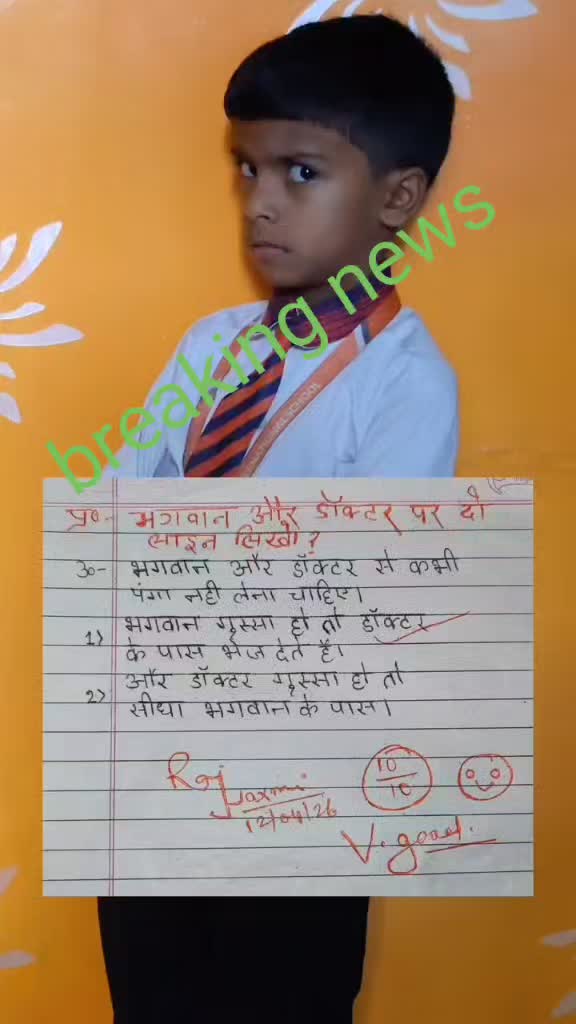 breaking news
SCHOOL
प्र०- भगवान और डॉक्टर पर दो
लाइन लिखो?
उ०- भगवान और डॉक्टर से कभी
पंगा नही लेना चाहिए।
1) भगवान गुस्सा हो तो डॉक्टर
के पास भेज देते है।
2) और डॉक्टर गुस्सा हो तो
सीधा भगवान के पास।
Rajlaxmi
12/04/26
10/10
V. good.